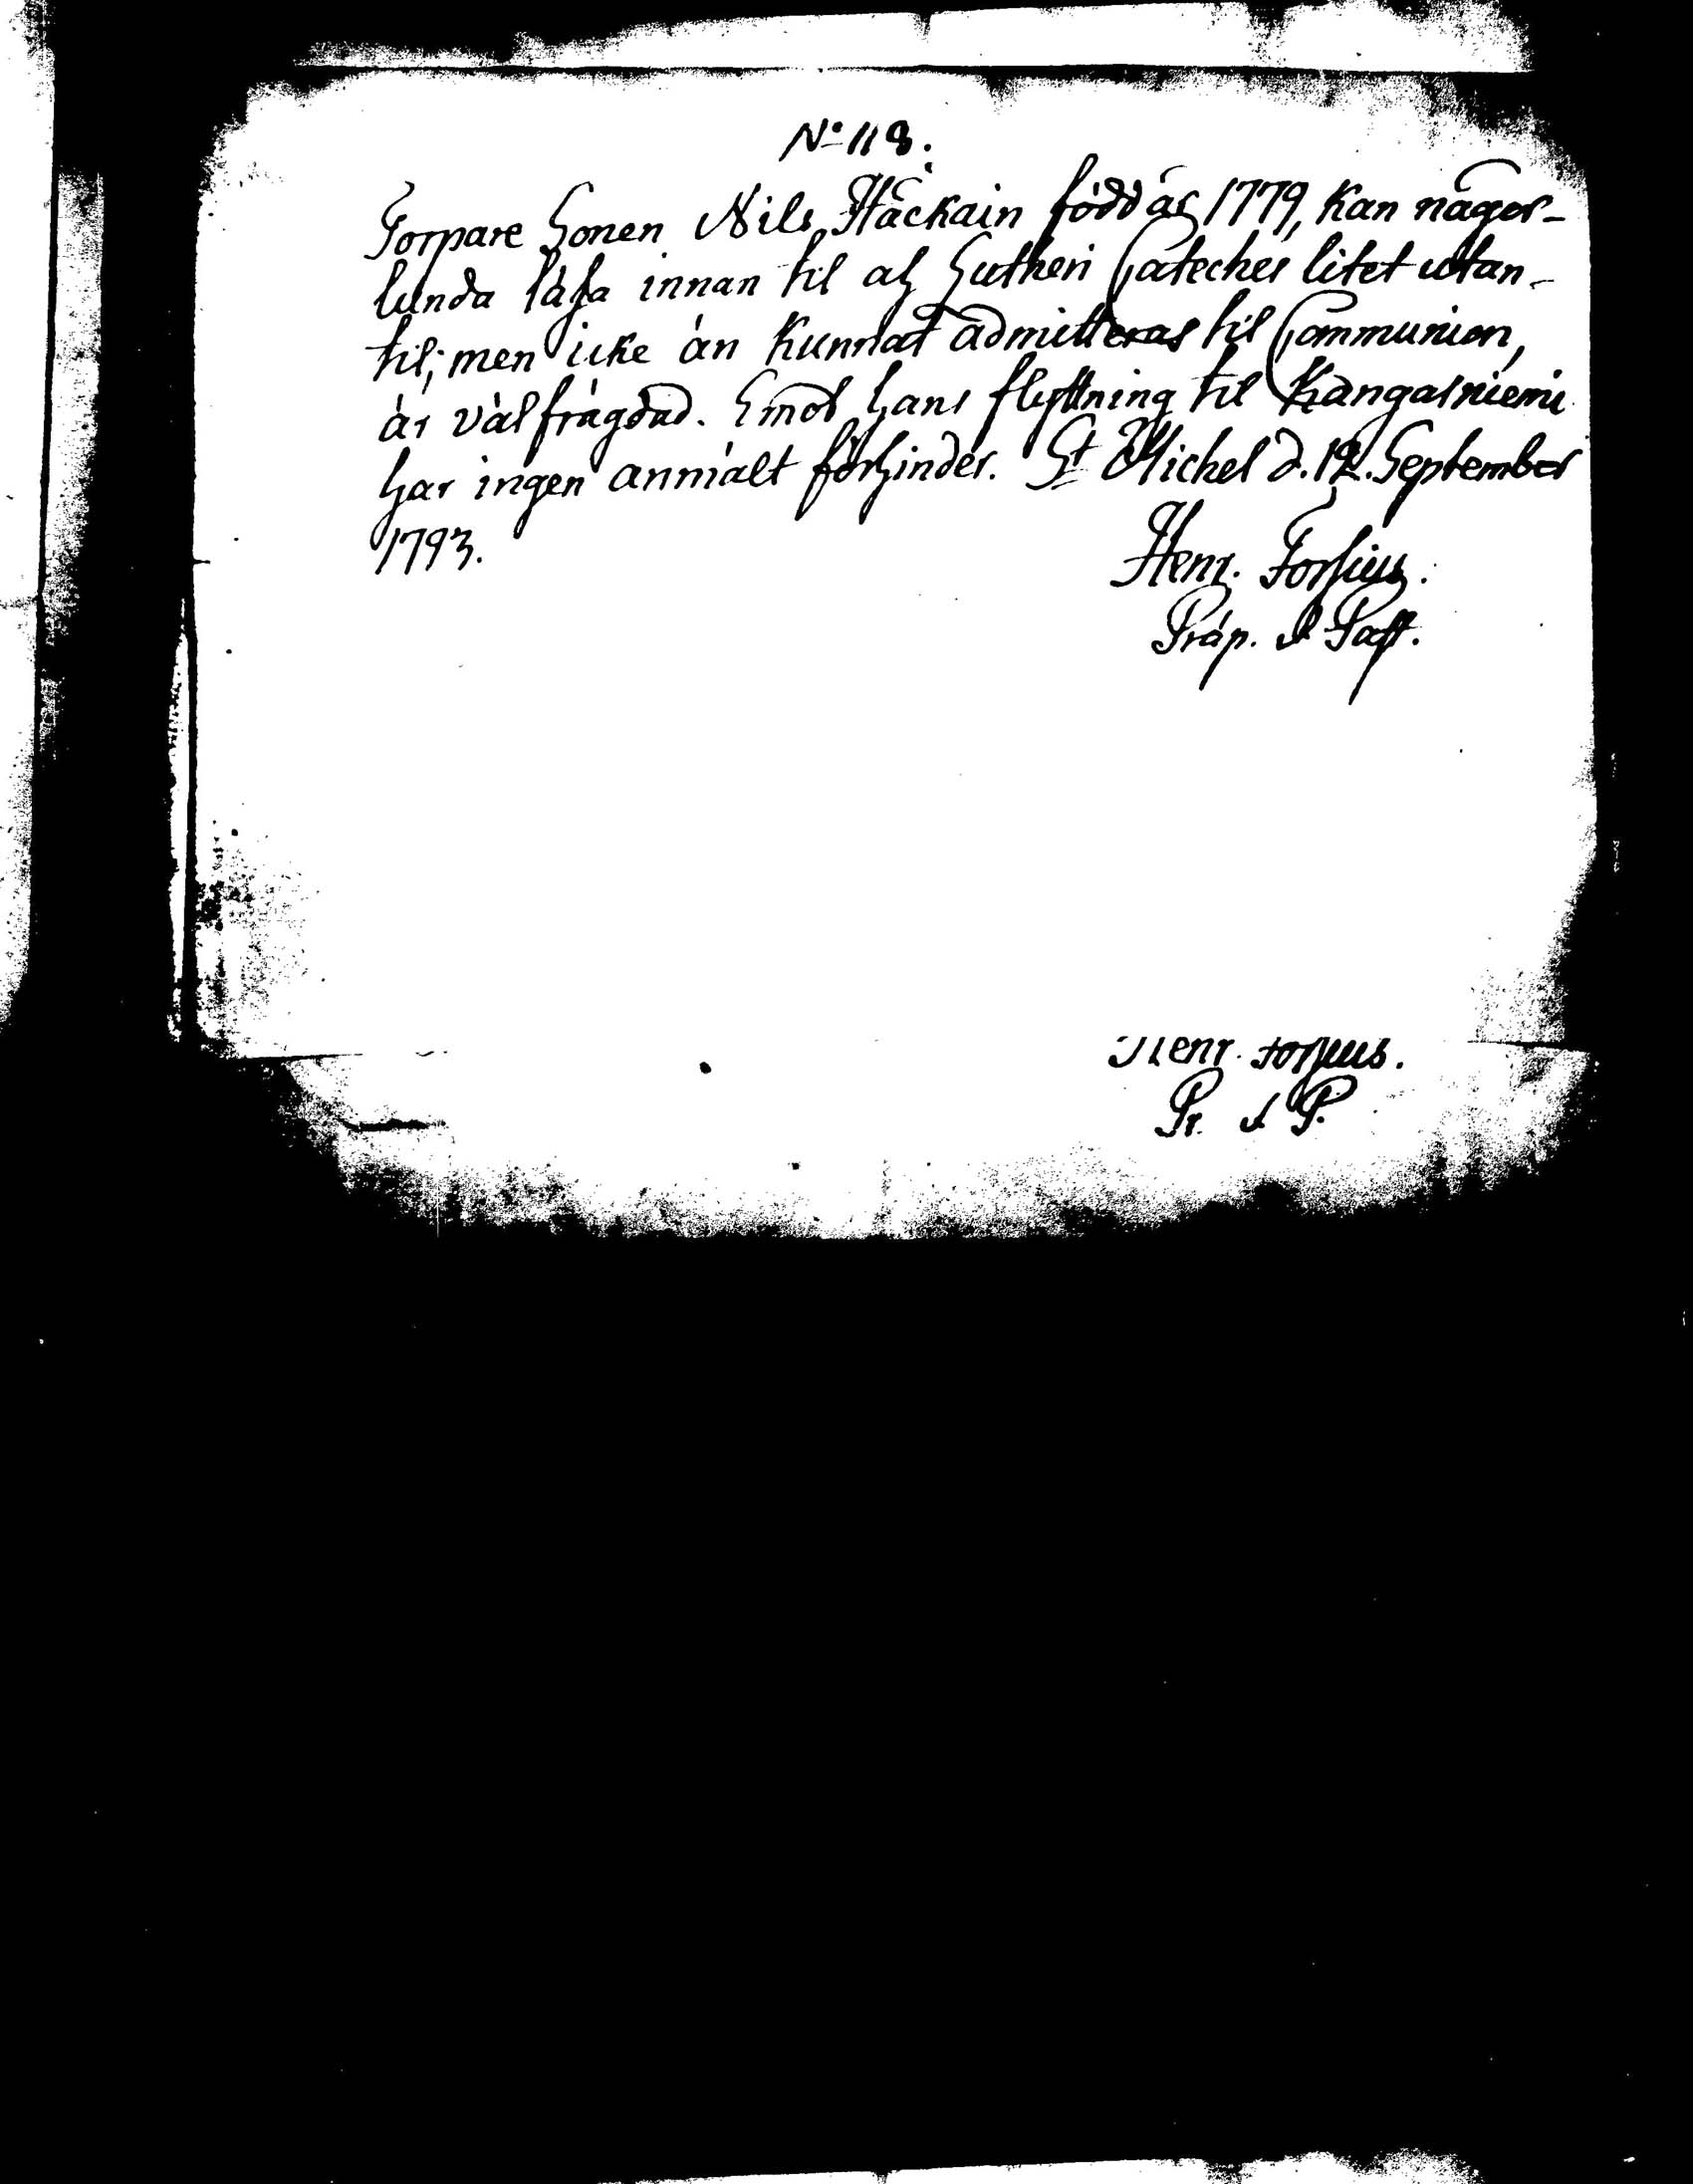 No 118.
Torpare Sonen Nils Häckain född år 1779, kan någor-
lunda läsa innan til af Lutheri Cateches litet utan-
til; men icke än kunnat admitteras til Communion,
är välfrägdad. Emot hans flyttning til Kangasniemi
har ingen anmält förhinder. St Michel d. 12. September
1793.
Henr. Forsius.
Präp. & Past.
Henr. Forsius.
Pr. & P.